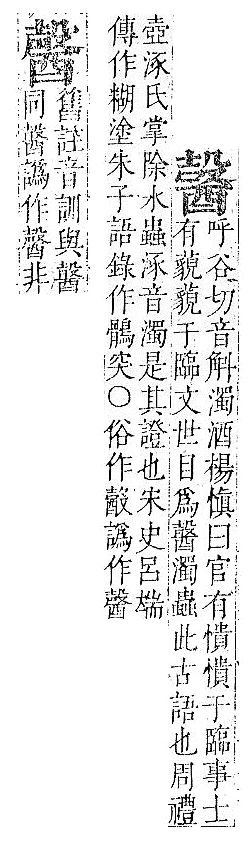 呼谷切音斛濁酒楊愼曰官有憒憒于臨事士
有藐藐于臨文世目爲濁蟲此古語也周禮
壺涿氏掌除水蟲涿音濁是其證也宋史呂端
傳作糊塗朱子語錄作鶻突○俗作譌作
舊註音訓與
同譌作非